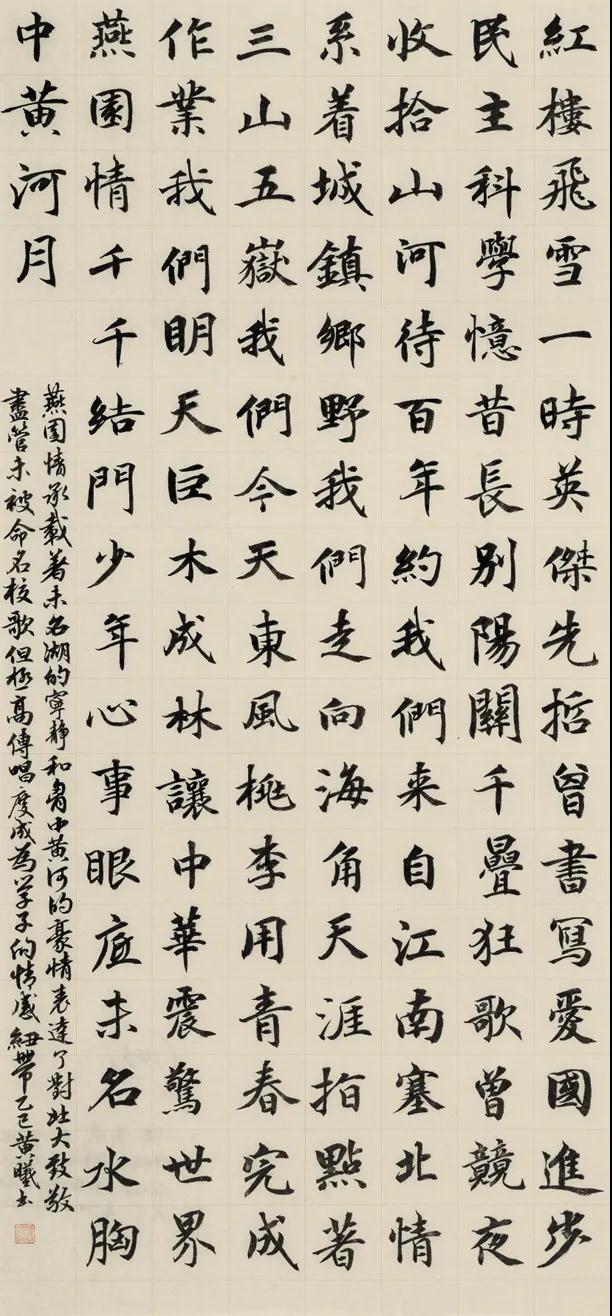 紅樓飛雪一時英傑先哲曾書寫愛國進步
民主科學憶昔長别陽關千疊狂歌曾競夜
收拾山河待百年約我們来自江南塞北情
系着城鎮鄉野我們走向海角天涯指點著
三山五嶽我們今天東風桃李用青春完成
作業我們明天巨木成林讓中華震驚世界
燕園情千千結門少年心事眼底未名水胸
中黄河月
燕園情承載著未名湖的寧静和胷中黄河的豪情表達了對北大致敬
盡管未被命名校歌但極高傳唱度成為学子的情感紐帶乙巳黄曦書